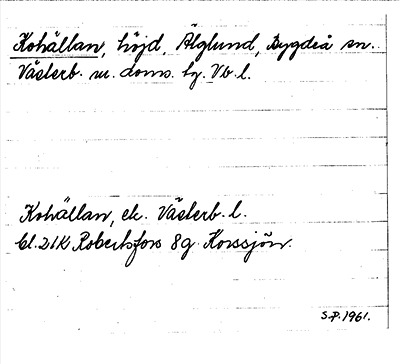 Kohällan, höjd, Älglund, Bygdeå sn.
Västerb. m. doms. lg. Vb. l.
Kohällan, ek. Västerb. l.
Bl. 21K Robertsfors 8g Korssjön.
S.P. 1961.